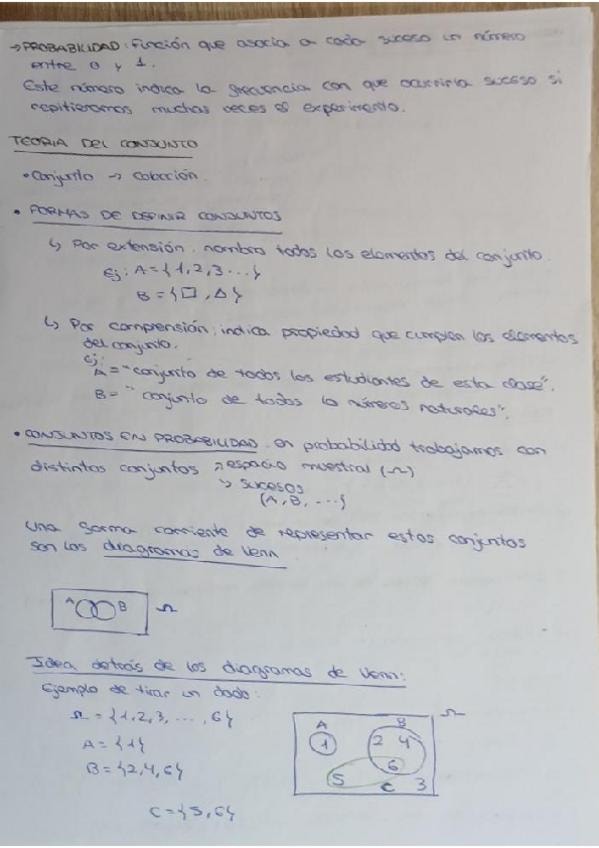 → PROBABILIDAD: Función que asocia a cada suceso un número
entre 0 y 1.
Este número indica la frecuencia con que ocurriría suceso si
repitieramos muchas veces el experimento.
TEORIA DEL CONJUNTO
• Conjunto → Colección.
• FORMAS DE DEFINIR CONJUNTOS
↳ Por extensión: nombro todos los elementos del conjunto.
Ej: A = {1, 2, 3 ...}
B = {□, △}
↳ Por comprensión: indica propiedad que cumplan los elementos
del conjunto.
ej:
A = "conjunto de todos los estudiantes de esta clase".
B = "conjunto de todos lo números naturales".
• CONJUNTOS EN PROBABILIDAD: en probabilidad trabajamos con
distintos conjuntos → espacio muestral (Ω)
↘ sucesos
(A, B, ...}
Una forma corriente de representar estos conjuntos
son los diagramas de Venn
A B Ω
Idea detrás de los diagramas de Venn:
Ejemplo de tirar un dado:
Ω = {1, 2, 3, ..., 6}
A = {1}
B = {2, 4, 6}
C = {5, 6}
A B Ω
1 2 4
6
5 C 3